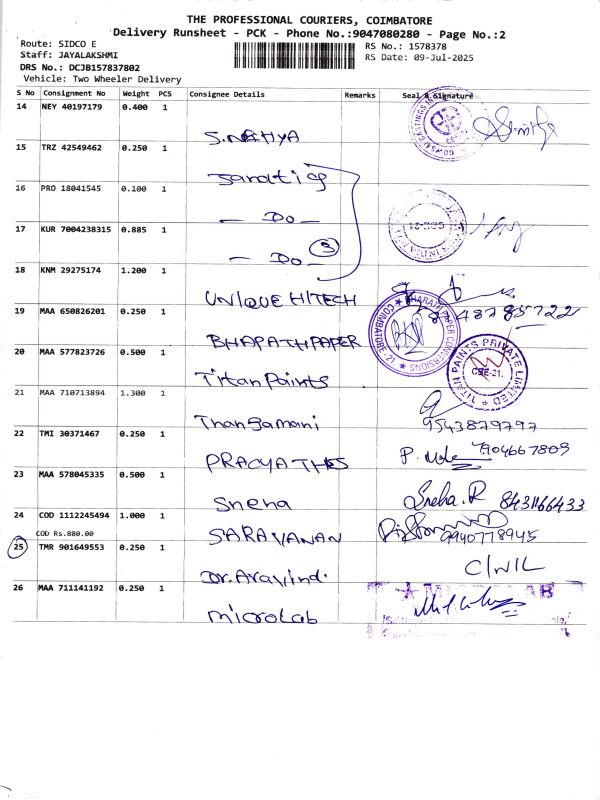 THE PROFESSIONAL COURIERS, COIMBATORE
Delivery Runsheet - PCK - Phone No.:9047080280 - Page No.:2
Route: SIDCO E
Staff: JAYALAKSHMI
DRS No.: DCJB157837802
Vehicle: Two Wheeler Delivery
RS No.: 1578378
RS Date: 09-Jul-2025
S No Consignment No Weight PCS Consignee Details Remarks Seal & Signature
14 NEY 40197179 0.400 1
S.NITHYA
15 TRZ 42549462 0.250 1
16 PRO 18041545 0.100 1
— Do —
17 KUR 7004238315 0.885 1
— Do — 3
18 KNM 29275174 1.200 1
UNIQUE HITECH 8748785722
19 MAA 650826201 0.250 1
BHARATHPAPER
BHARATH PAPER CONVERSIONS COIMBATORE-21
20 MAA 577823726 0.500 1
Titan Paints
TITAN PAINTS PRIVATE LIMITED
CBE-21.
21 MAA 710713894 1.300 1
Thangamani 9543879797
22 TMI 30371467 0.250 1
23 MAA 578045335 0.500 1
Sneha Sneha.R 8431166433
24 COD 1112245494 1.000 1
COD Rs.880.00
SARAVANAN 9940778945
25 TMR 901649553 0.250 1
Dr.Aravind. C/WIL
26 MAA 711141192 0.250 1
microLab